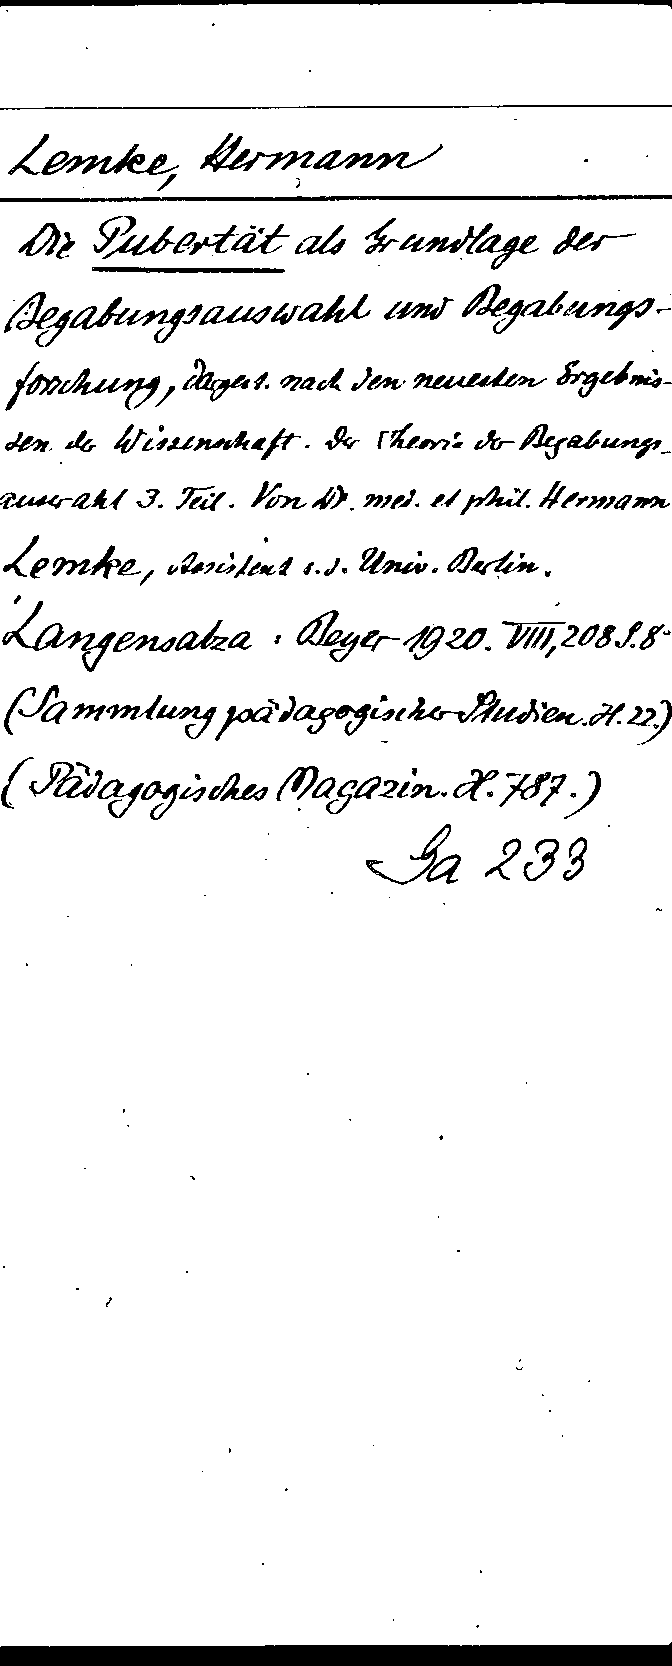 Lemke, Hermann
Die Pubertät als Grundlage der
Begabungsauswahl und Begabungs-
forschung, dargest. nach den neuesten Ergebnis-
sen der Wissenschaft. Der Theorie der Begabungs-
auswahl 3. Teil. Von Dr. med. et phil. Hermann
Lemke, Assistent a.d. Univ. Berlin.
Langensalza: Beyer 1920. VIII, 208 S. 8°
(Sammlung pädagogischer Studien. H. 22.)
(Pädagogisches Magazin. H. 787.)
Ga 233